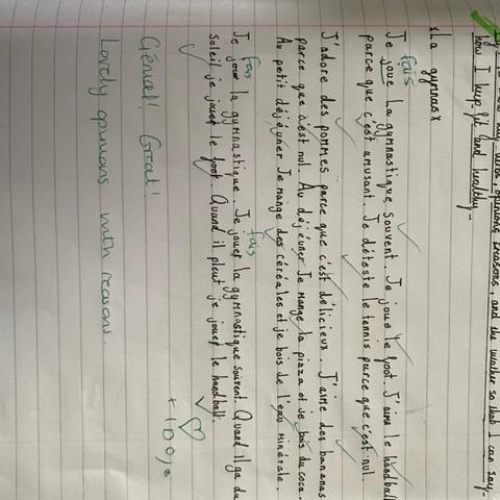 opinions, reasons, and the weather so that I can say-
how I keep fit and healthy-
xLa gymnasx
fais
Je joue la gymnastique souvent. Je joue le foot. J'aime le handball
parce que c'est amusant. Je déteste le tennis parce que c'est nul.
J'adore des pommes parce que c'est délicieux. J'aime des bananas
parce que c'est nul. Au déjeuner Je mange la pizza et je bois du coca.
Au petit déjeuner Je mange des céréales et je bois de l'eau minérale.
fais fais
Je joue la gymnastique. Je jouer la gymnastique souvent. Quand il ya du
soleil je jouer le foot. Quand il pleut je jouer le handball.
Génial! Great!
Lovely opinions with reasons